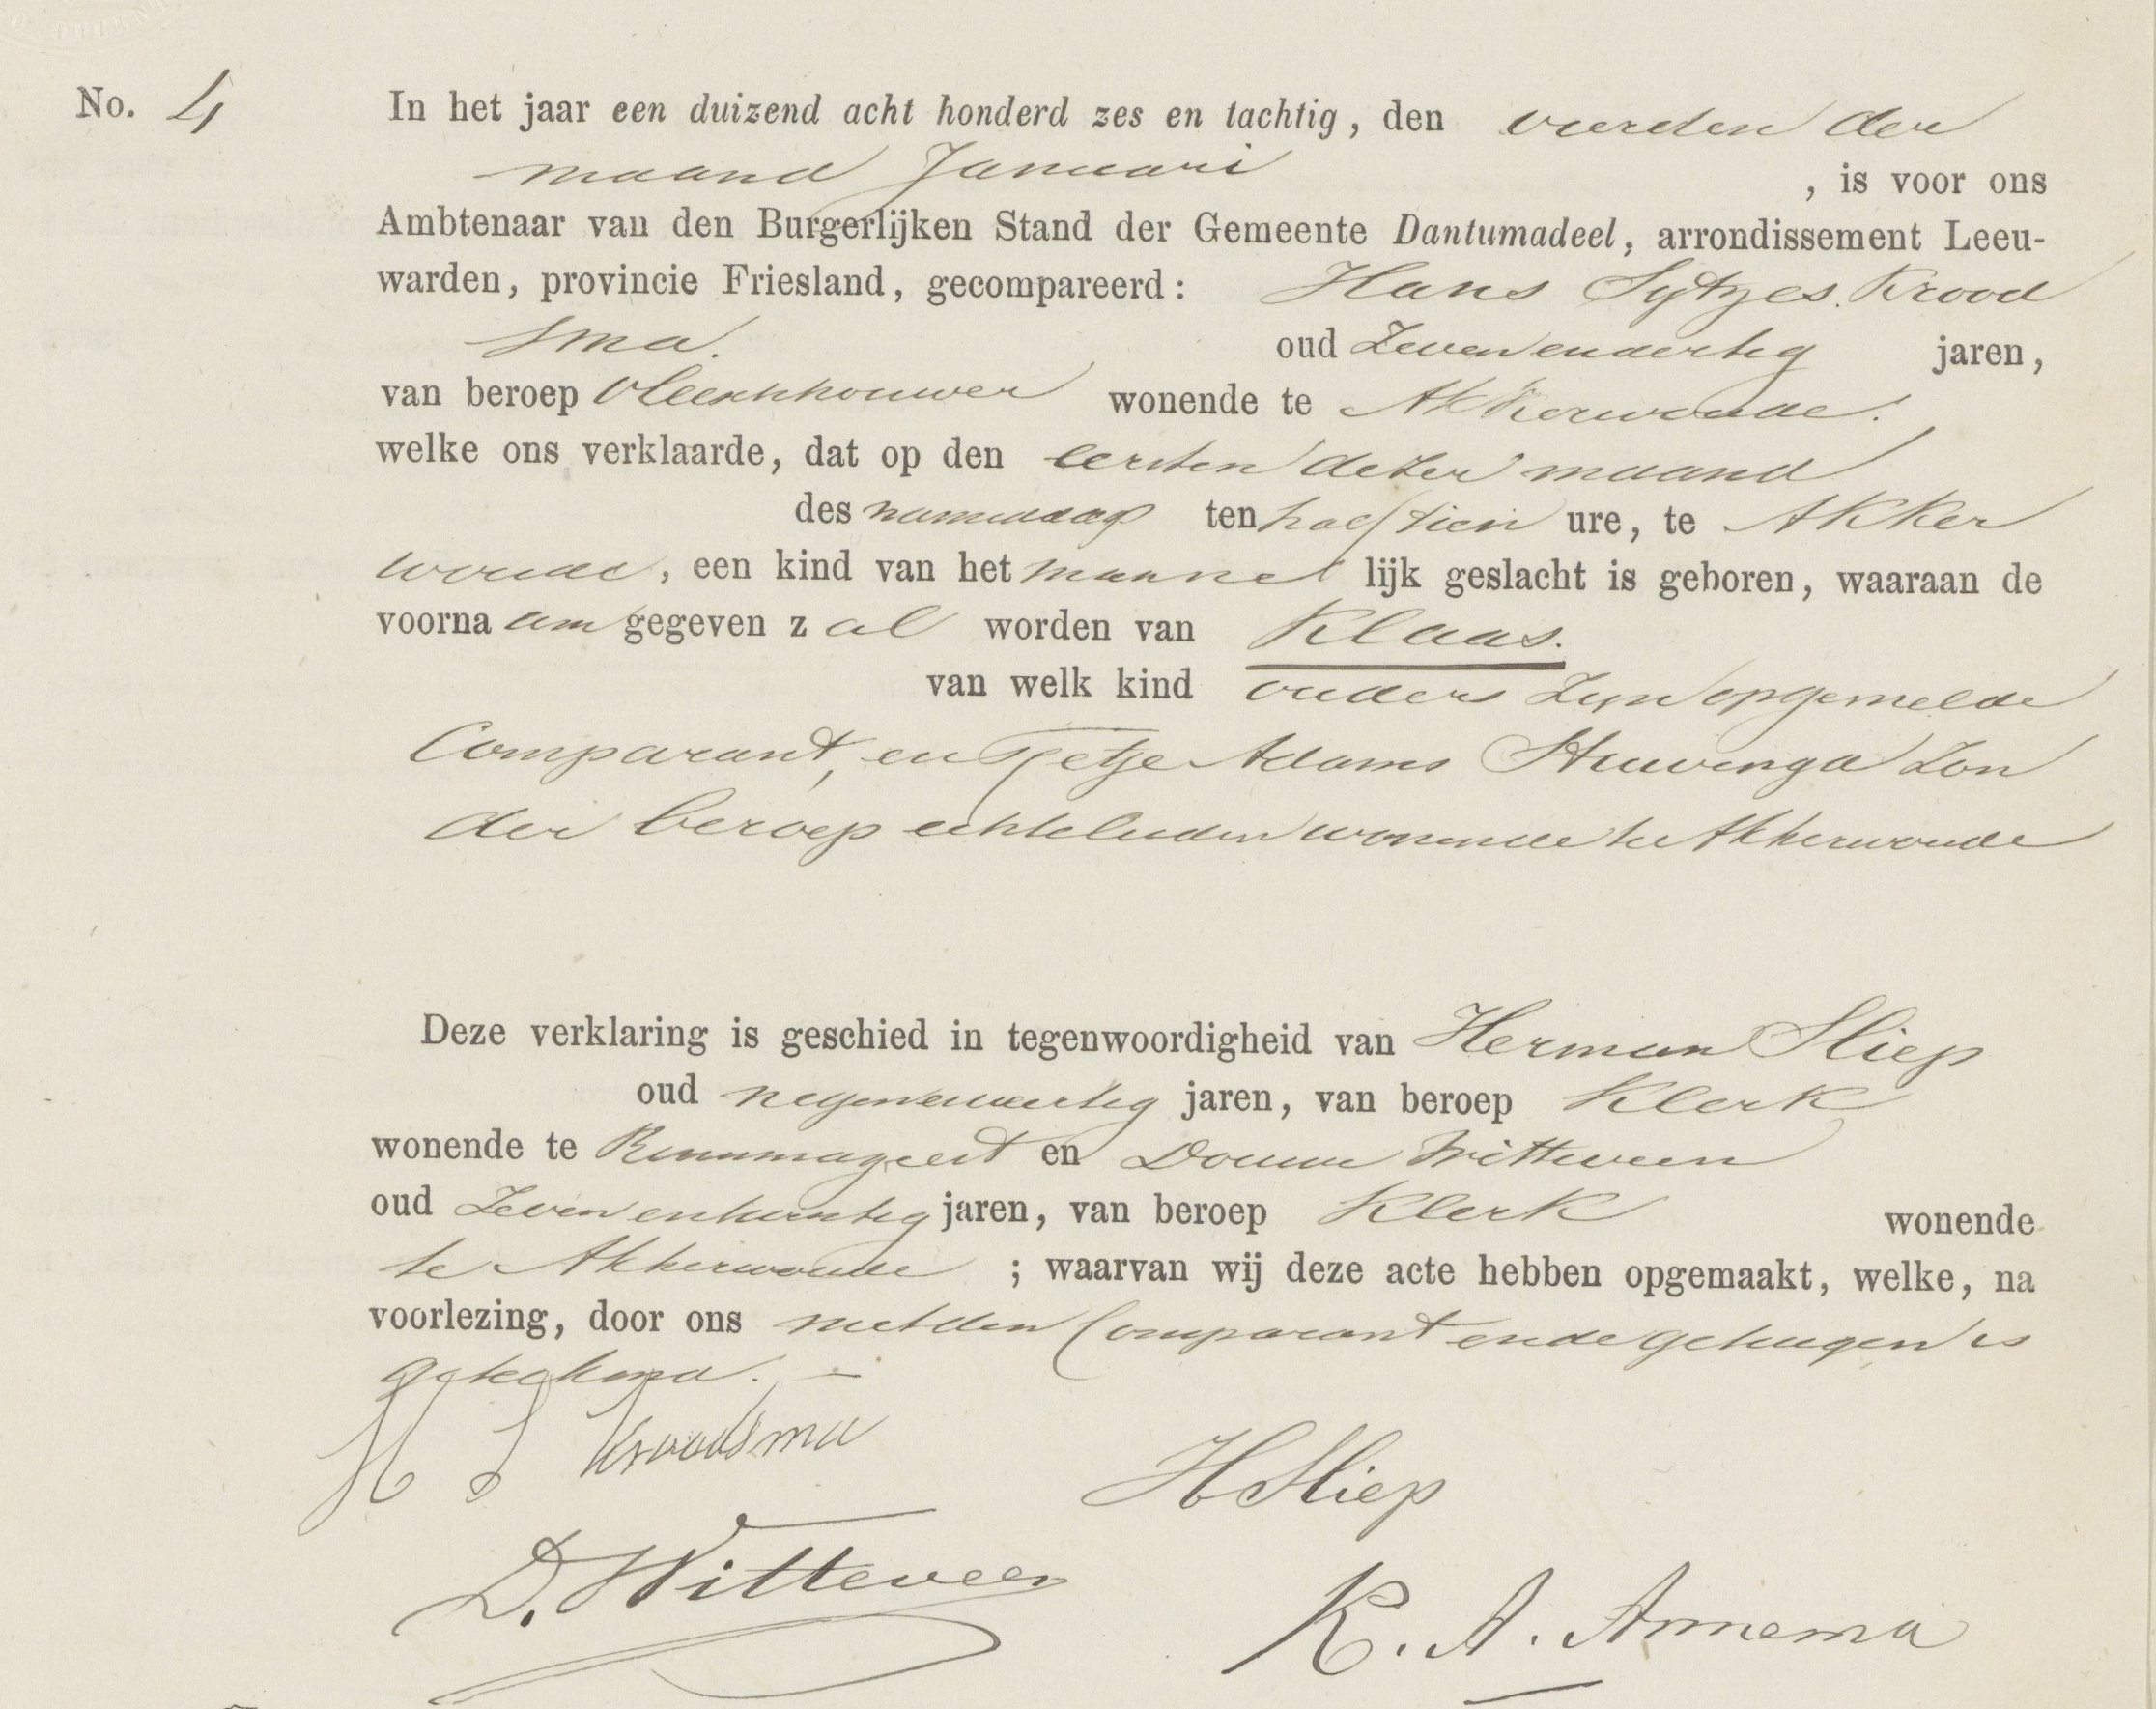 No. 4 In het jaar een duizend acht honderd zes en tachtig, den vierden der
maand Januari , is voor ons
Ambtenaar van den Burgerlijken Stand der Gemeente Dantumadeel, arrondissement Leeu-
warden, provincie Friesland, gecompareerd: Hans Sytzes Krood
sma. oud Zevenendertig jaren,
van beroep vleeschhouwer wonende te Akkerwoude.
welke ons verklaarde, dat op den eersten dezer maand
des namiddags ten half tien ure, te Akker
woude, een kind van het manne lijk geslacht is geboren, waaraan de
voorna am gegeven z al worden van Klaas.
van welk kind ouders zijn opgemelde
Comparant, en Tjetje Adams Stuivinga zon
der beroep echtelieden wonende te Akkerwoude
Deze verklaring is geschied in tegenwoordigheid van Herman Sliep
oud negenenveertig jaren, van beroep Klerk
wonende te Rinsumageest en Douwe Witteveen
oud Zevenentwintig jaren, van beroep Klerk wonende
te Akkerwoude ; waarvan wij deze acte hebben opgemaakt, welke, na
voorlezing, door ons met den Comparant en de getuigen is
geteekend. –
H S Kroodsma
H Sliep
D. Witteveen
K. A. Annema